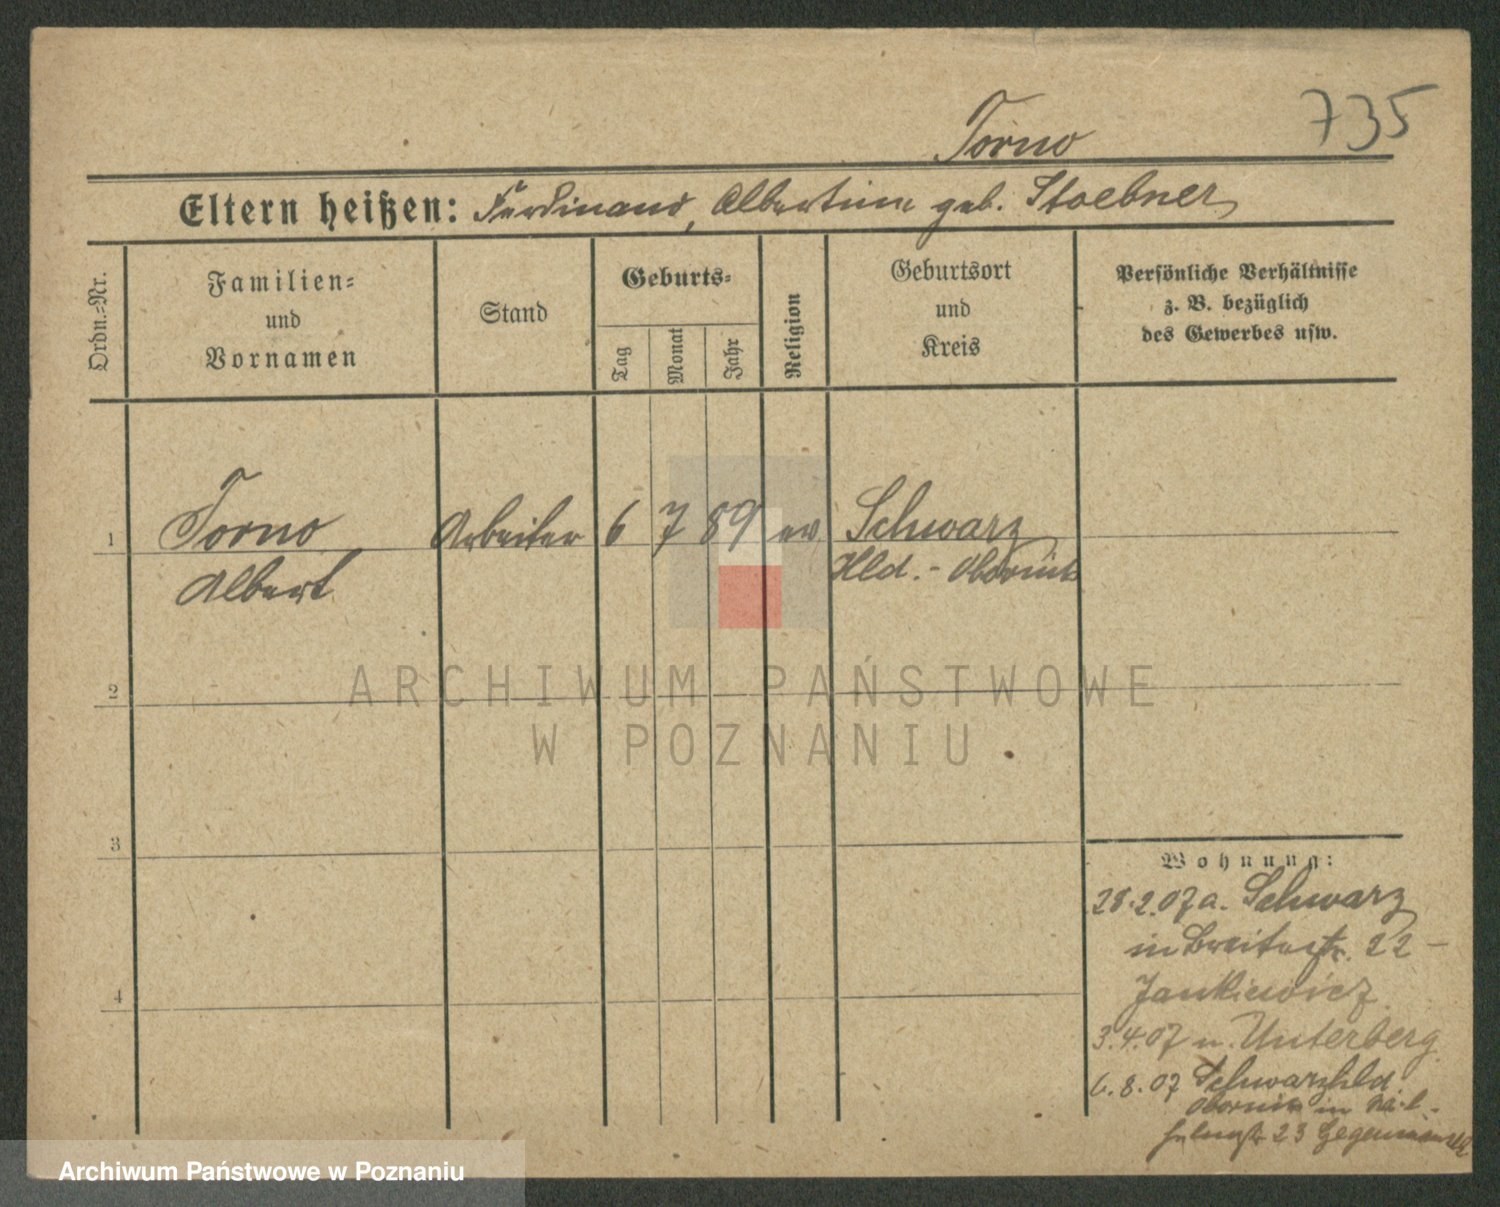 735
Torno
Eltern heißen: Ferdinand, Albertine geb. Stoebner
Ordn.-Nr.
Familien-
und
Vornamen
Stand
Geburts-
Tag
Monat
Jahr
Religion
Geburtsort
und
Kreis
Persönliche Verhältnisse
z. B. bezüglich
des Gewerbes usw.
1 Torno Arbeiter 6 7 89 ev Schwarz
Albert Hld. - Obornik
2
ARCHIWUM PAŃSTWOWE
W POZNANIU
3
Wohnung:
28.2.07 a. Schwarz
in Breitestr. 22 -
Jankiewicz
4
3.4.07 n. Unterberg
6.8.07 Schwarzhld
Obornik in
23 Gegenmantel
Archiwum Państwowe w Poznaniu